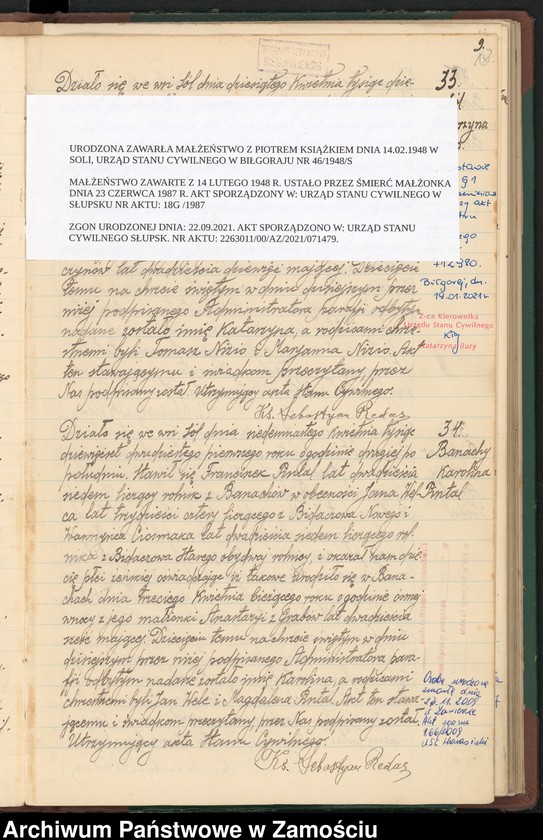 9.
18.
Działo się we wsi Sól dnia dziesiątego Kwietnia tysiąc dzie-
33.
URODZONA ZAWARŁA MAŁŻEŃSTWO Z PIOTREM KSIĄŻKIEM DNIA 14.02.1948 W
SOLI, URZĄD STANU CYWILNEGO W BIŁGORAJU NR 46/1948/S
MAŁŻEŃSTWO ZAWARTE Z 14 LUTEGO 1948 R. USTAŁO PRZEZ ŚMIERĆ MAŁŻONKA
DNIA 23 CZERWCA 1987 R. AKT SPORZĄDZONY W: URZĄD STANU CYWILNEGO W
SŁUPSKU NR AKTU: 18G /1987
ZGON URODZONEJ DNIA: 22.09.2021. AKT SPORZĄDZONO W: URZĄD STANU
CYWILNEGO SŁUPSK. NR AKTU: 2263011/00/AZ/2021/071479.
czynów lat dwadzieścia dziewięć mającej. Dziecięciu
temu na chrzcie świętym w dniu dzisiejszym przez
niżej podpisanego Administratora parafji odbytym
nadane zostało imię Katarzyna, a rodzicami chrze-
stnemi byli Tomasz Nizio i Maryanna Nizio. Akt
ten stawającemu i świadkom przeczytany, przez
Nas podpisany został. Utrzymujący akta Stanu Cywilnego.
Ks. Sebastyan Redas
Biłgoraj, dn.
19.01.2021r
Z-ca Kierownika
Urzędu Stanu Cywilnego
Katarzyna Bury
34.
Banachy
Karolina
Pintal
Działo się we wsi Sól dnia siedemnastego Kwietnia tysiąc
dziewięćset dwudziestego pierwszego roku o godzinie drugiej po
południu. Stawił się Franciszek Pintal lat dwadzieścia
siedem liczący rolnik z Banachów w obecności Jana Wel-
ca lat trzydzieści cztery liczącego z Bidaczowa Nowego i
Wawrzyńca Ciosmaka lat dwadzieścia siedem liczącego rol-
nika z Bidaczowa Starego obydwaj rolnicy, i okazał Nam dzie-
cię płci żeńskiej oświadczając iż takowe urodziło się w Bana-
chach dnia trzeciego Kwietnia bieżącego roku o godzinie ósmej
wieczór z jego małżonki Anastazyi z Grabów lat dwadzieścia
sześć mającej. Dziecięciu temu na chrzcie świętym w dniu
dzisiejszym przez niżej podpisanego Administratora para-
fji odbytym nadane zostało imię Karolina, a rodzicami
chrzestnemi byli Jan Welc i Magdalena Pintal. Akt ten stawa-
jącemu i świadkom przeczytany, przez Nas podpisany został.
Utrzymujący akta Stanu Cywilnego.
Ks. Sebastyan Redas
Osoba urodzona
zmarła dnia
Akt zgonu
166/2009
Archiwum Państwowe w Zamościu